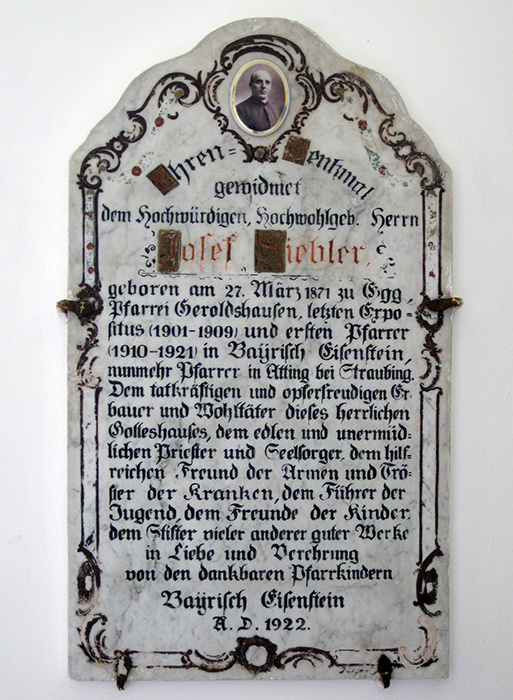 Ehren=Denkmal
gewidmet
dem Hochwürdigen, Hochwohlgeb. Herrn
Josef Siebler,
geboren am 27. März 1871 zu Egg,
Pfarrei Geroldshausen, letzten Expo-
situs (1901-1909) und ersten Pfarrer
(1910-1921) in Bayrisch Eisenstein,
nunmehr Pfarrer in Atting bei Straubing.
Dem tatkräftigen und opferfreudigen Er-
bauer und Wohltäter dieses herrlichen
Gotteshauses, dem edlen und unermüd=
lichen Priester und Seelsorger, dem hilf=
reichen Freund der Armen und Trö=
ster der Kranken, dem Führer der
Jugend, dem Freunde der Kinder,
dem Stifter vieler anderer guter Werke
in Liebe und Verehrung
von den dankbaren Pfarrkindern
Bayrisch Eisenstein
A. D. 1922.